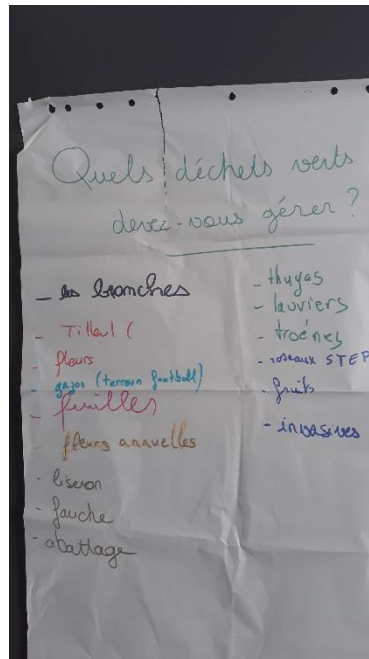 Quels déchets verts
devez-vous gérer ?
- les branches
- Tilleul (
- fleurs
- gazon (terrain football)
- feuilles
- fleurs annuelles
- liseron
- fauche
- abattage
- thuyas
- lauriers
- troënes
- roseaux STEP
- fruits
- invasives